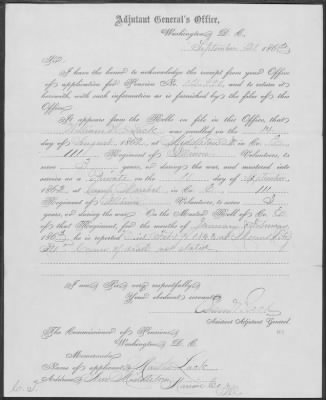 Adjutant General's Office,
Washington D. C.
September 21, 1865
Sir:
I have the honor to acknowledge the receipt from your Office
of application for Pension No. and to return it
herewith, with such information as is furnished by the files of this
Office.
It appears from the Rolls on file in this Office, that
William Lack was enrolled on the
day of August, 1862, at Middleton in Co.
111 Regiment of Illinois Volunteers, to serve
3 years, or during the war, and mustered into
service as a Private on the day of September
1862, at Camp Marshal in Co. 111
Regiment of Illinois Volunteers, to serve 3
years, or during the war. On the Muster Roll of Co.
of that Regiment, for the months of January & February
1863, he is reported died
Ills Cause of death not stated
I am, Sir, very respectfully,
Your obedient servant,
Assistant Adjutant General
The Commissioner of Pensions,
Washington, D. C.
Memoranda
Name of applicant Lack
Address, New Middleton, Marion Co